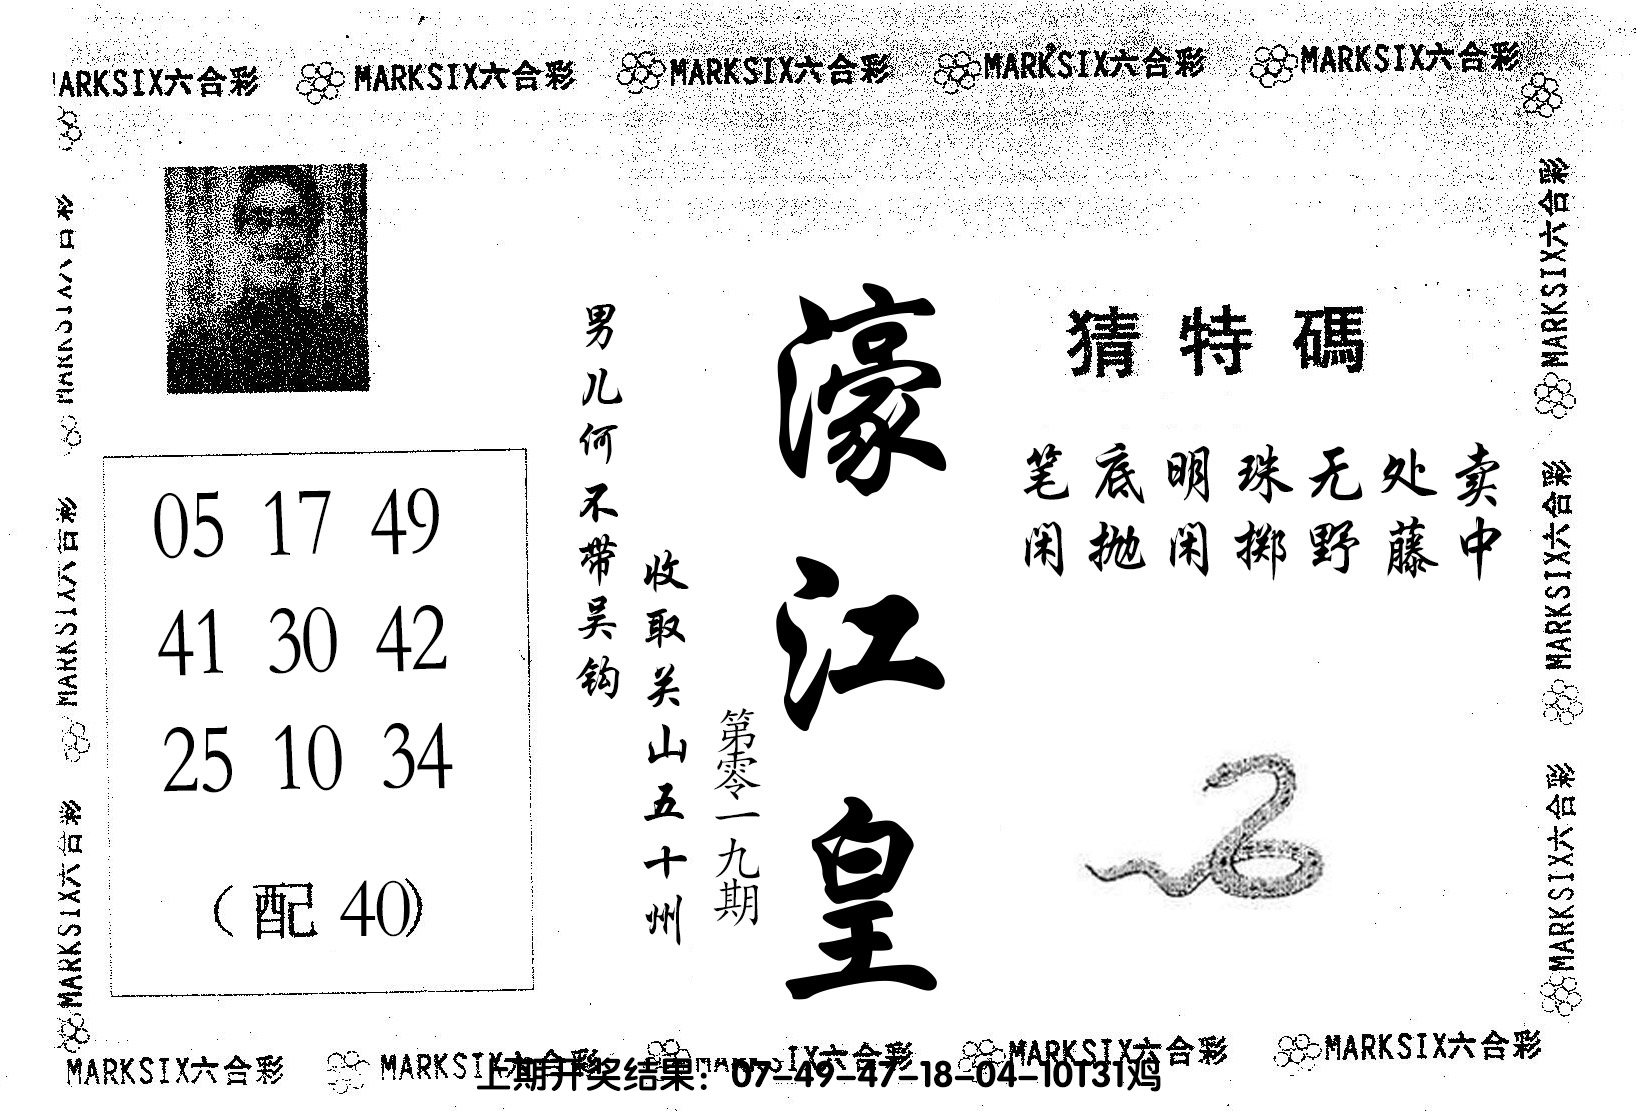 MARKSIX六合彩 MARKSIX六合彩 MARKSIX六合彩 MARKSIX六合彩 MARKSIX六合彩
MARKSIX六合彩
MARKSIX六合彩
MARKSIX六合彩
05 17 49
41 30 42
25 10 34
（配 40）
男儿何不带吴钩
收取关山五十州
第零一九期
濠江皇
猜特碼
笔底明珠无处卖
闲抛闲掷野藤中
MARKSIX六合彩
MARKSIX六合彩
MARKSIX六合彩
MARKSIX六合彩 MARKSIX六合彩 MARKSIX六合彩 MARKSIX六合彩 MARKSIX六合彩
上期开奖结果：07-49-47-18-04-10T31鸡